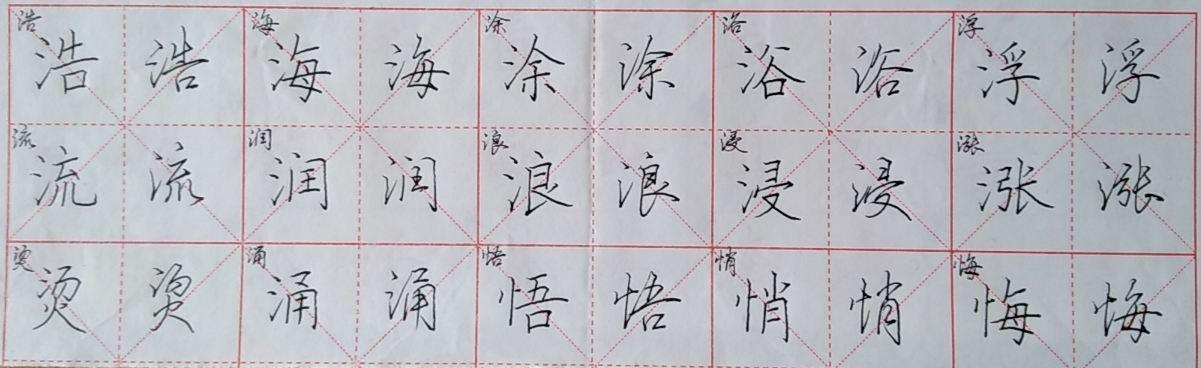 浩 海 涂 浴 浮
浩 浩 海 海 涂 涂 浴 浴 浮 浮
流 润 浪 浸 涨
流 流 润 润 浪 浪 浸 浸 涨 涨
烫 涌 悟 悄 悔
烫 烫 涌 涌 悟 悟 悄 悄 悔 悔